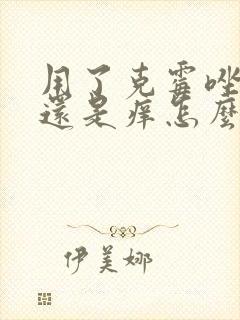 用了克霉唑
還是痒怎麼
伊美娜